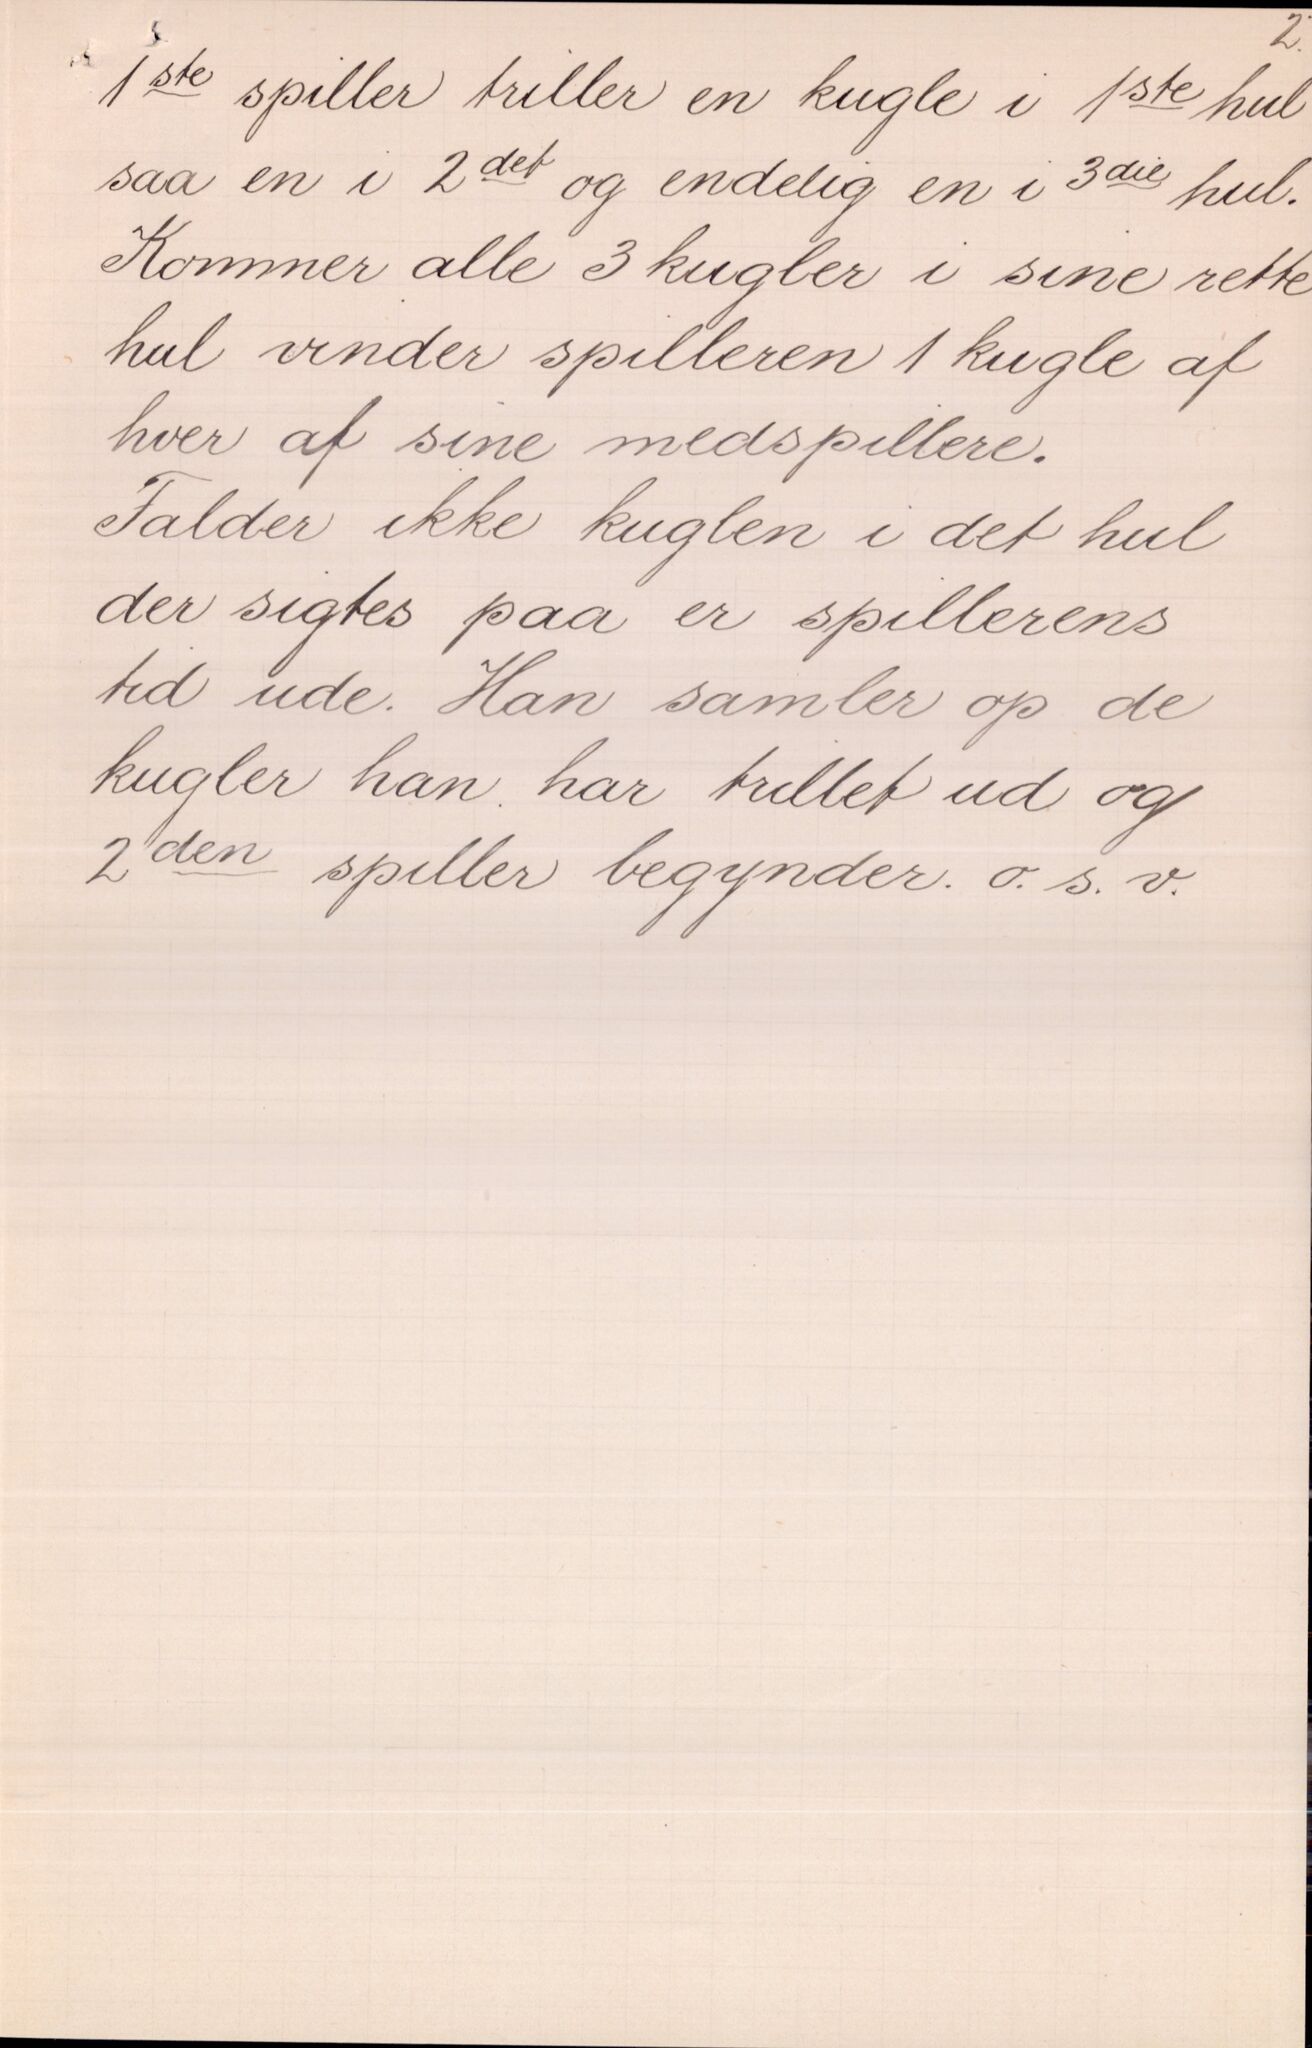 2.
1ste spiller triller en kugle i 1ste hul
saa en i 2det og endelig en i 3die hul.
Kommer alle 3 kugler i sine rette
hul vinder spilleren 1 kugle af
hver af sine medspillere.
Falder ikke kuglen i det hul
der sigtes paa er spillerens
tid ude. Han samler op de
kugler han har trillet ud og
2den spiller begynder. o. s. v.